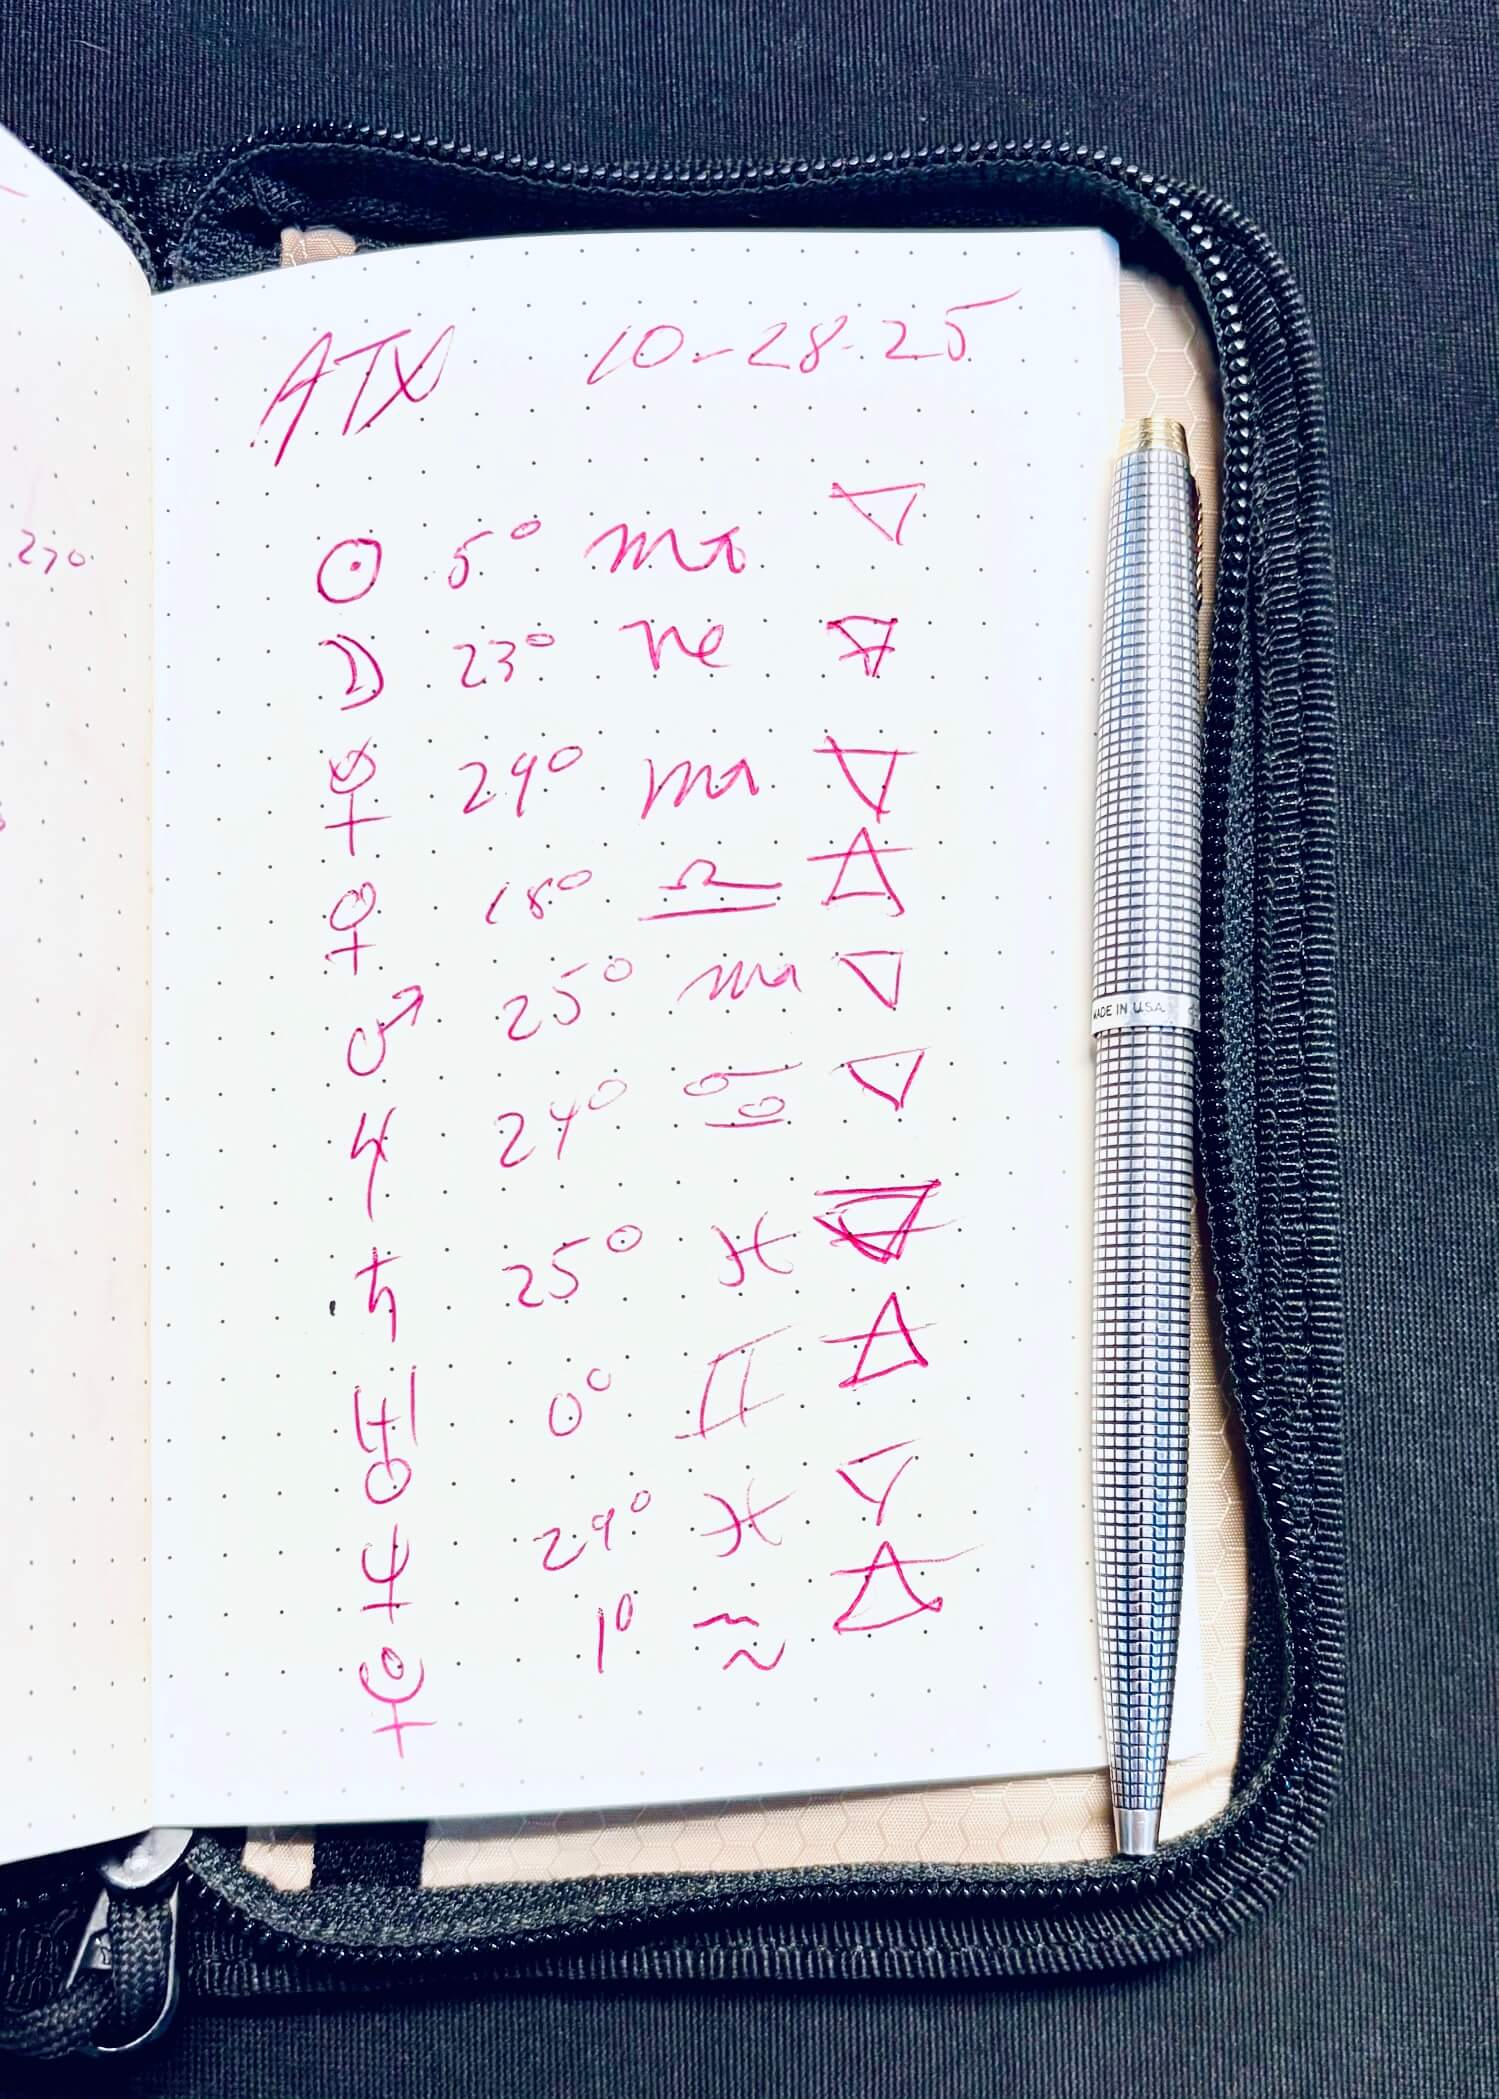 ATX 10-28-25
☉ 5° ♏ 🜄
☽ 23° ♑ 🜃
☿ 29° ♏ 🜄
♀ 18° ♎ 🜁
♂ 25° ♏ 🜄
♃ 24° ♋ 🜄
♄ 25° ♓
♅ 0° ♊ 🜁
♆ 29° ♓ 🜄
♇ 1° ♒ 🜁
270
MADE IN U.S.A.